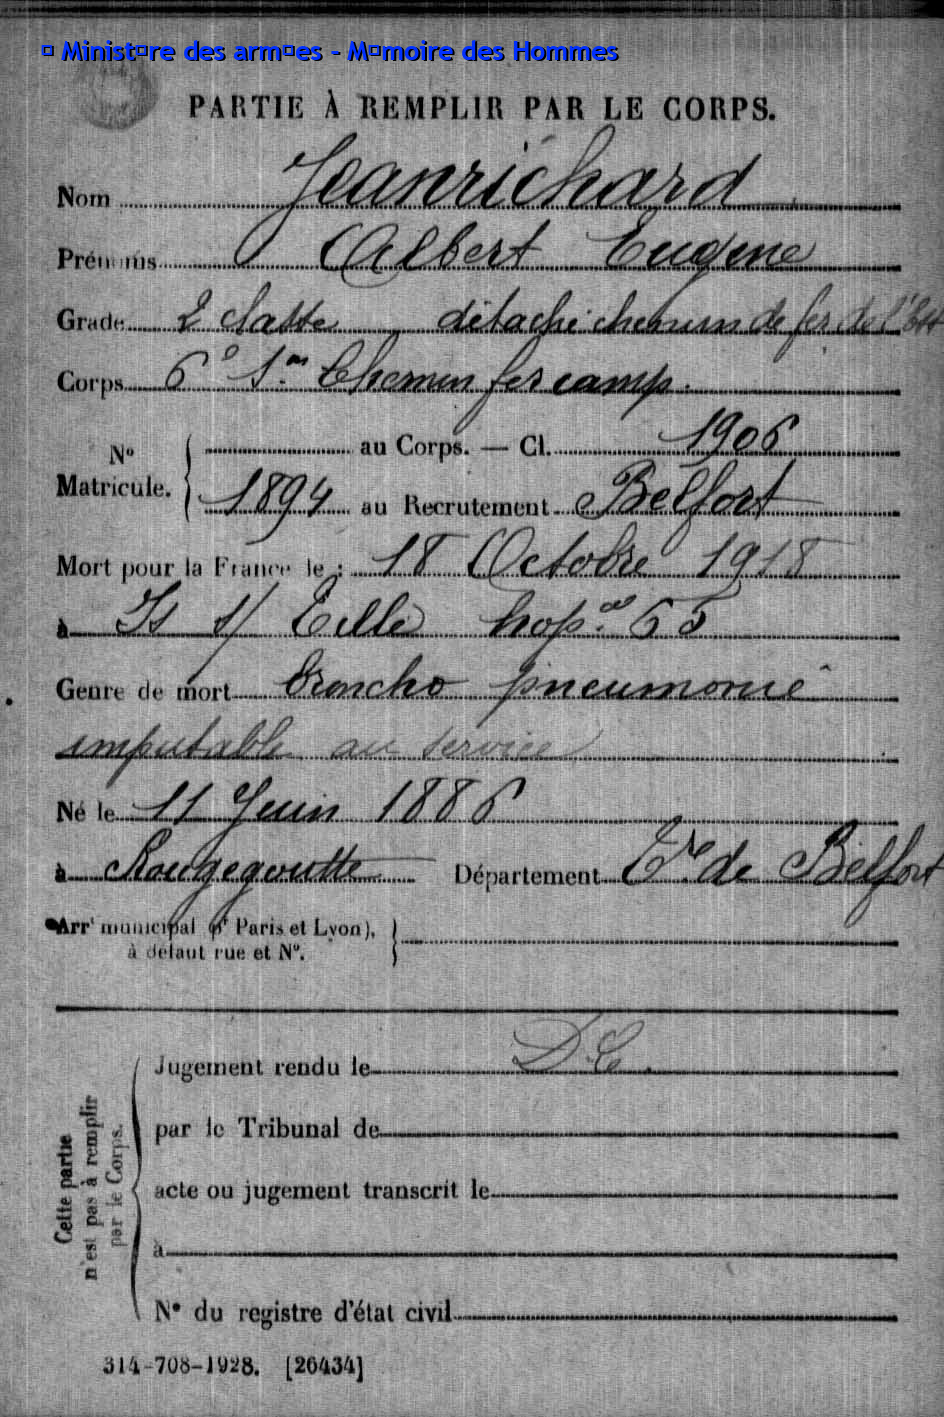 Ministre des armes - Mmoire des Hommes
PARTIE À REMPLIR PAR LE CORPS.
Nom Jeanrichard
Prénoms Albert Eugene
Grade 2 classe détaché chemin de fer de l'Est
Corps 6° S.on Chemin fer camp.
N° au Corps. — Cl. 1906
Matricule. 1894 au Recrutement Belfort
Mort pour la France le : 18 Octobre 1918
à Is s/ Tille hop.al 65
Genre de mort broncho pneumonie
imputable au service
Né le 11 Juin 1886
à Rougegoutte Département Tre de Belfort
Arrt municipal (pr Paris et Lyon),
à défaut rue et N°.
Jugement rendu le
par le Tribunal de
acte ou jugement transcrit le
à
N° du registre d'état civil
Cette partie
n'est pas à remplir
par le Corps.
314-708-1928. [26434]